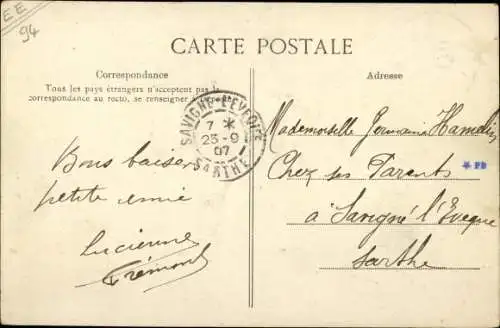 EE
94
CARTE POSTALE
Correspondance
Tous les pays étrangers n'acceptent pas la
correspondance au recto, se renseigner à la poste
Adresse
SAVIGNÉ L'EVÊQUE
7 *
25-9
07
SARTHE
Bons baisers
petite amie
Lucienne
Frémont
Mademoiselle Germaine Hamelin
Chez ses Parents
à Savigné l'Eveque
Sarthe
* PD